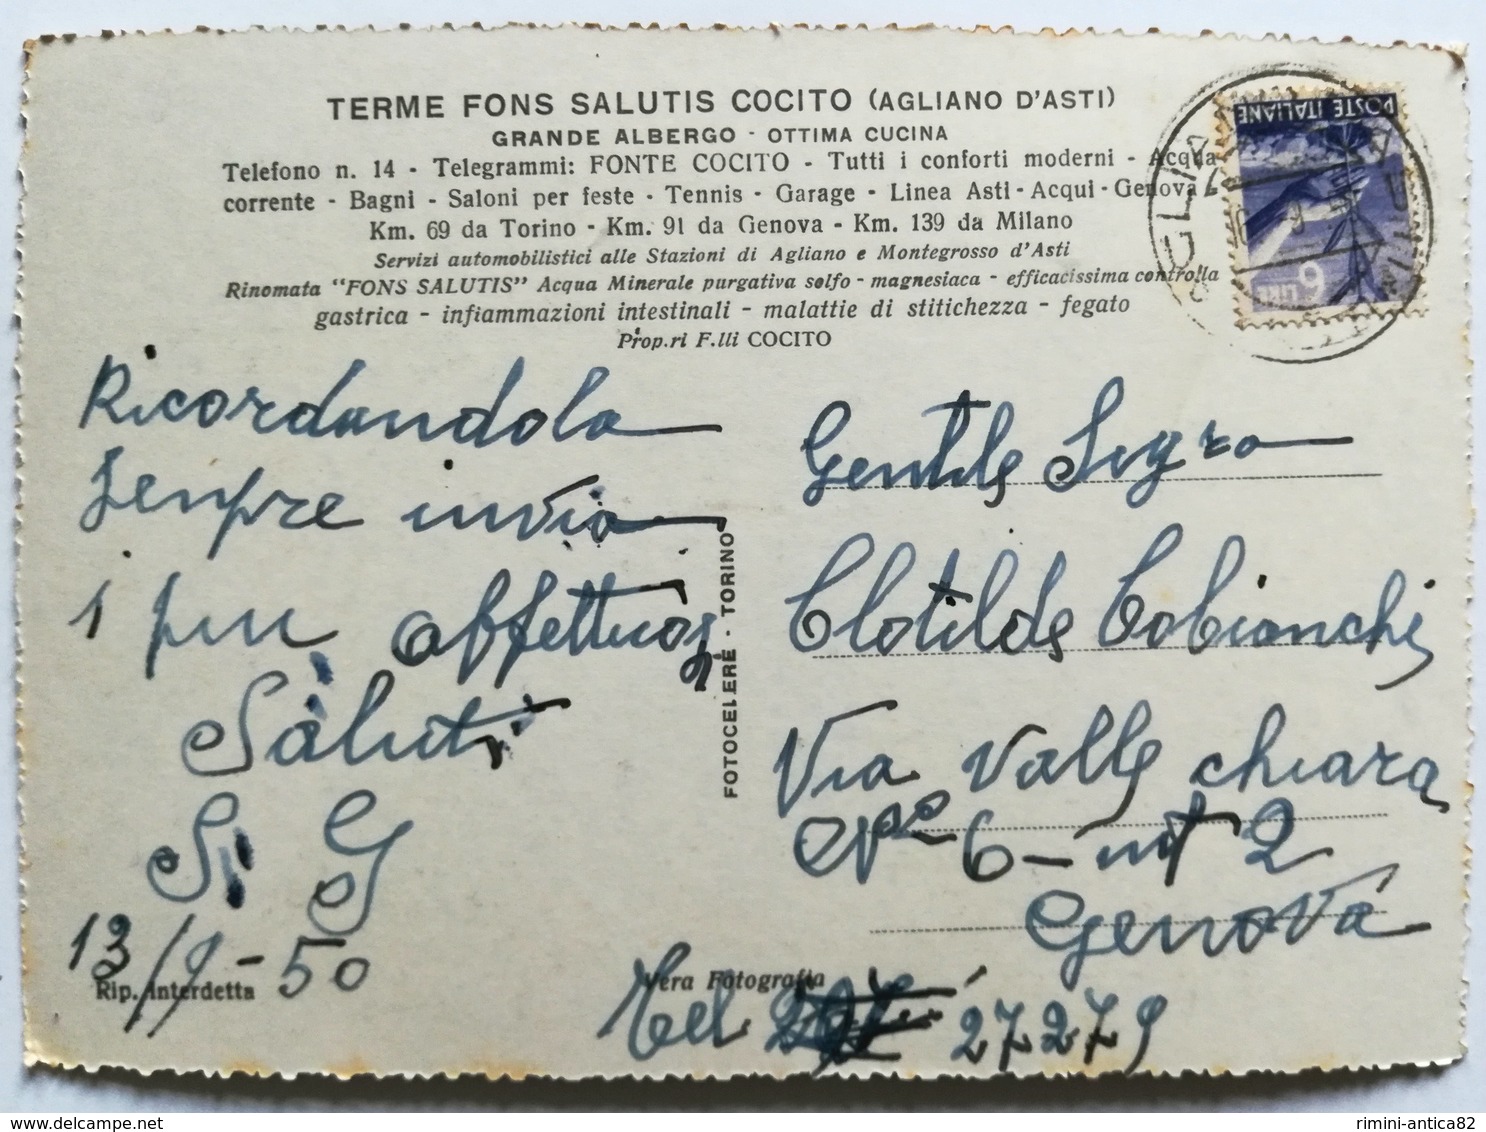 TERME FONS SALUTIS COCITO (AGLIANO D'ASTI)
GRANDE ALBERGO - OTTIMA CUCINA
Telefono n. 14 - Telegrammi: FONTE COCITO - Tutti i conforti moderni - Acqua
corrente - Bagni - Saloni per feste - Tennis - Garage - Linea Asti - Acqui - Genova
Km. 69 da Torino - Km. 91 da Genova - Km. 139 da Milano
Servizi automobilistici alle Stazioni di Agliano e Montegrosso d'Asti
Rinomata "FONS SALUTIS" Acqua Minerale purgativa solfo - magnesiaca - efficacissima controlla
gastrica - infiammazioni intestinali - malattie di stitichezza - fegato
Prop.ri F.lli COCITO
POSTE ITALIANE
LIRE 9
Ricordandola
sempre invio
i più affettuosi
Saluti
S. G
13/9-50
Rip. Interdetta
FOTOCELERE - TORINO
Vera Fotografia
Gentile Sigra
Clotilde Cobianchi
Via Valle chiara
6 - int 2
Genova
Tel 27279
rimini-antica82